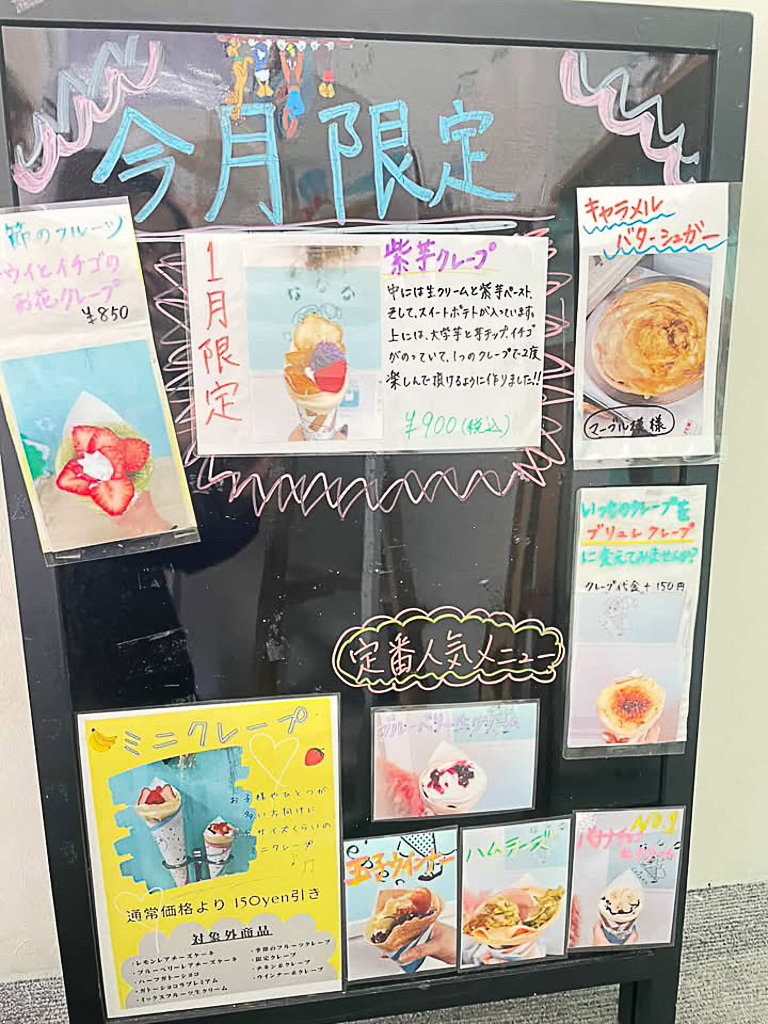 今月限定
節のフルーツ
ウイとイチゴの
お花クレープ
¥850
1月限定
紫芋クレープ
中には生クリームと紫芋ペースト、
そして、スイートポテトが入っています。
上には、大学芋と芋チップ、イチゴ
がのっていて、1つのクレープで2度
楽しんで頂けるように作りました!!
¥900(税込)
キャラメル
バターシュガー
マーブル模様
いつものクレープを
ブリュレクレープ
に変えてみませんか?
クレープ代金+150円
定番人気メニュー
ミニクレープ
お子様やひとつが
多い方向けに
サイズくらいの
ニクレープ
通常価格より 150yen引き
対象外商品
・レモンレアチーズケーキ
・ブルーベリーレアチーズケーキ
・ハーフガトーショコ
・ガトーショコラプレミアム
・ミックスフルーツ生クリーム
・季節のフルーツクレープ
・限定クレープ
・チキン系クレープ
・ウインナー系クレープ
ブルーベリー生クリーム
玉子ウインナー
ハムチーズ
NO.1